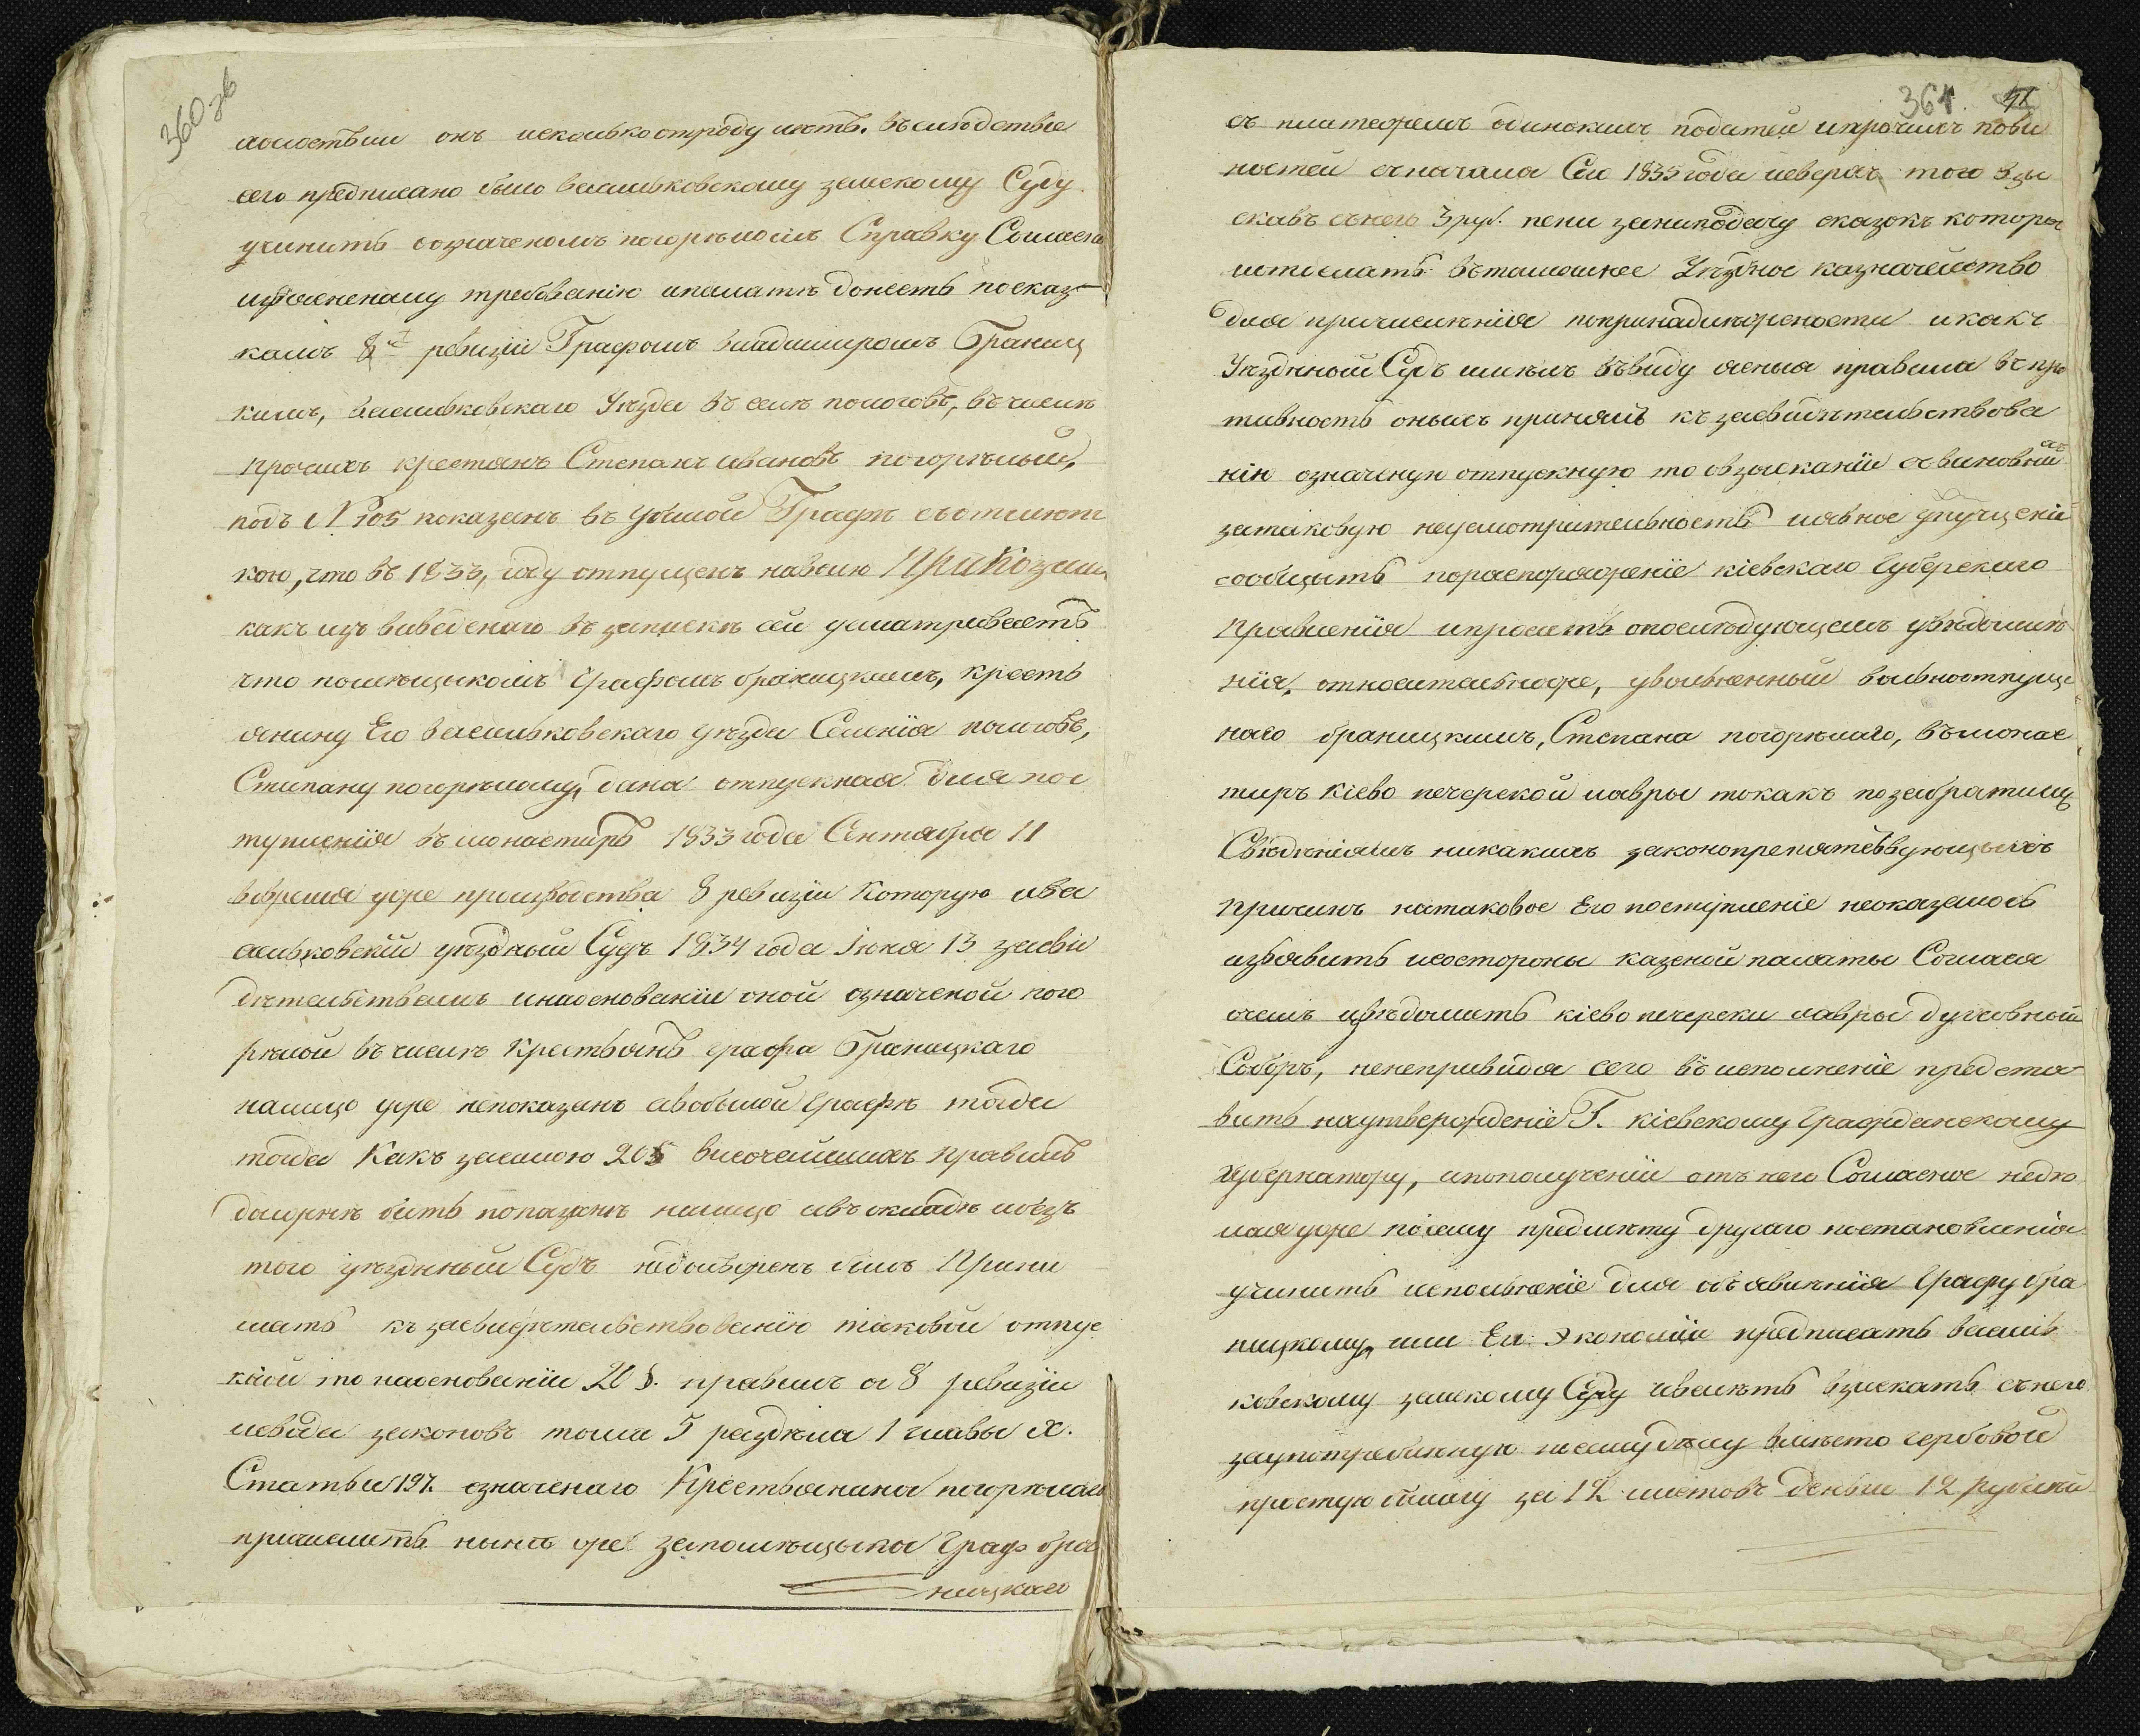 360 зв
лолетвии онъ исколькоотроду летъ. въследствие
сего предписано было васильковскому земскому Суду
учинить означеномъ погореломъ Справку Согласно
изъясненому требованию ипалате донесть посказ
камъ 8й ревизіи Графомъ владимиромъ Браниц
кимъ, васильковского Уезда въ селе пологовъ, въ числе
прочихъ крестянъ Степанъ ивановъ погорелый,
подъ № 105 показанъ въ убылой Графе съ отмет
кою, что въ 1833, году отпущенъ наволю Приказали
какъ изъ виведенаго въ записке сей усматриваетъ
что помещыкомъ Графомъ браницкимъ, кресть
янину Его васильковскаго уезда Селенія пологовъ,
Степану погорелому, дана отпускная для пос
тупленія въ монастиръ 1833 года Сентября 11
вовремя уже произвоства 8 ревизіи Которую ива
сильковскій уездный Судъ 1834 года Іюня 13 засви
детельствалъ инаосновании оной означеной пого
релой въ числе Крестьянъ графа Браницкаго
налицо уже непоказанъ авобылой графе тогда
тогда Какъ засилою 20§ височайшихъ правилъ
долженъ бить показанъ налицо ивъ окладе ибезъ
того уездный Судъ недолженъ былъ Прини
мать къ засвидетельствованію таковой отпус
кной то наосновании 20 §. правилъ о 8 ревизіи
исвода законовъ тома 5 раздела 1 главы х.
Статьи 197. означенаго Крестьянина погорелаго
причислить ныне же запомещыка Графа бра
ницкаго
361. 41
съ платежемъ одинокимъ податей ипрочихъ пови
ностей сначала Сего 1835 года исверхъ того взы
скавъ снего 3 руб. пени заниподачу сказокъ которы
истислать въ тамошнее Уездное казначейство
для причисленія попринадлежности икакъ
Уездный Судъ имелъ въвиду ясныя правила въ про
тивность оныхъ принялъ къ засвидетельствова
нію означеную отпускную то овзысканіи свиновныхъ
затаковую неусмотрительность иявное упущеніе
сообщыть нораспоряженіе кіевскаго Губерскаго
Правленія ипросить опоследующемъ уведомле
нія, относительноже, уволненный вольноотпуще
наго браницкимъ, Степана погорелаго, въ монас
тиръ Кіево печерской лавры токакъ позабратимъ
Сведеніямъ никакихъ законопрепятсвующыхъ
Причинъ натаковое Его поступленіе неоказалось
изъявить исостороны казеной палаты Согласія
очемъ уведомить кіево печерски лавры духовный
Соборъ, ненепривидя сего въ исполненіе предста
вить наутвержденіе Г. Кіевскому гражданскому
губернатору, ипополученіи отъ него Согласное недо
лая уже посему предмету другаго постановленія
учинить исполненіе для объявленія Графу бра
ницкому, или Ею Экономіи предписать василь
ковскому земскому Суду ивелеть взискать снего
заупотребленную посемуделу вместо гербовой
простую бумагу за 12 листовъ деньги 12 рублей